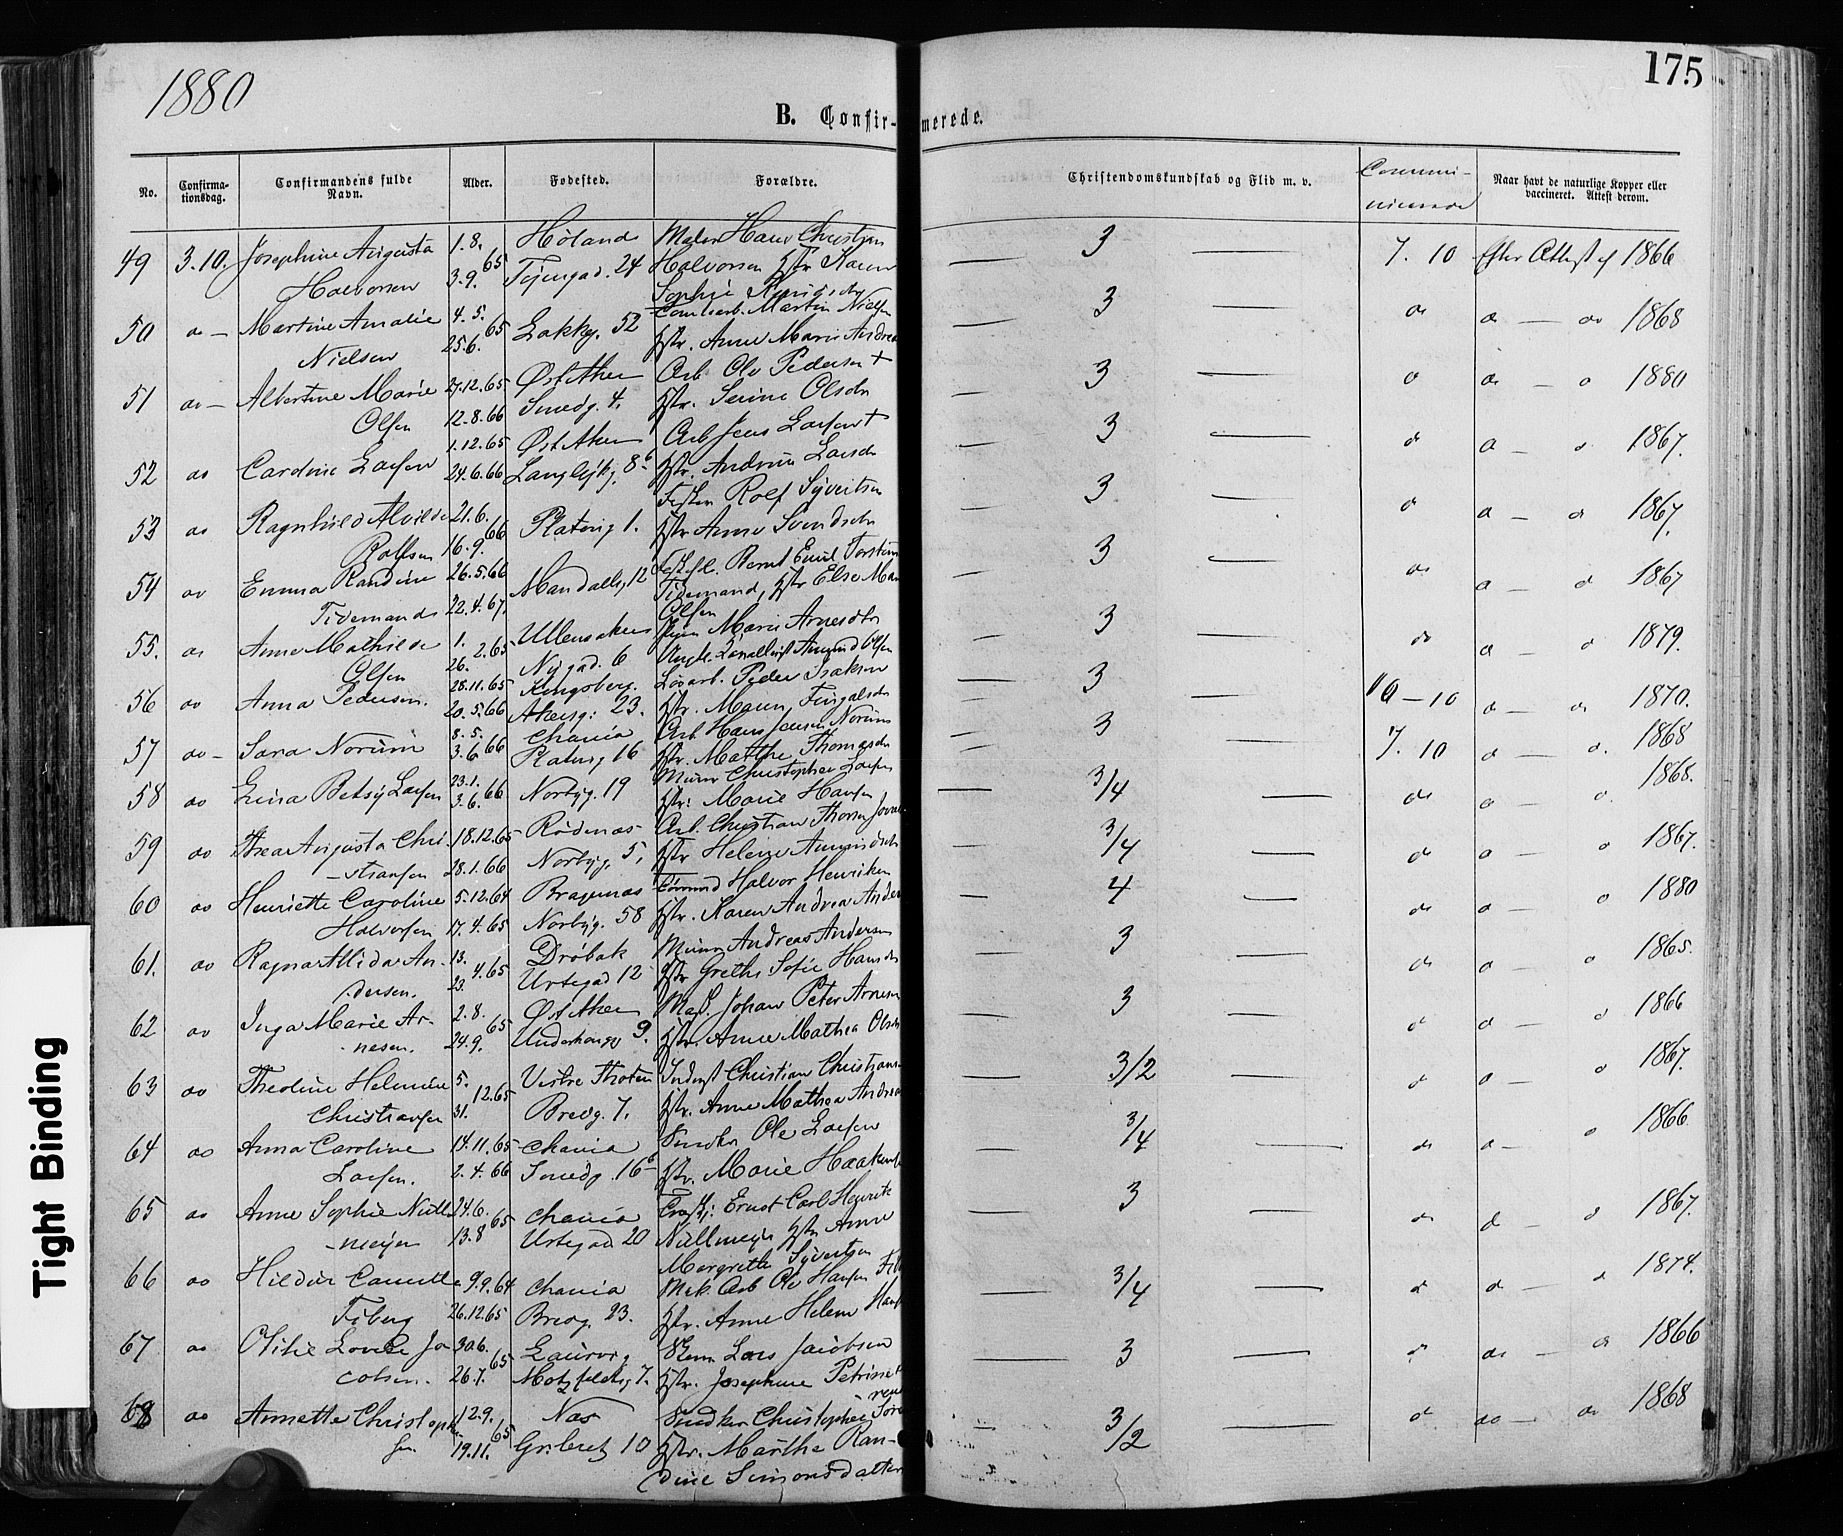 1880
175
B. Confir-merede.
No. Confirma-tionsdag. Confirmandens fulde Navn. Alder. Fødested. Forældre. Christendomskundskab og Flid m. v. Communi-cerede Naar havt de naturlige Kopper eller vaccineret. Attest derom.
49 3.10. Josephine Augusta 1.8. Høland Maler Hans Christian 3 — 7. 10 Efter Attest af 1866
Halvorsen 3.9. 65 Tøiengad. 24 Halvorsen Hstr Karen
Sophie
50 do — Martine Amalie 4.5. 65 Lakkg. 52 Martin Nielsen 3 — do do — do 1868
Nielsen 25.6. Hstr. Anne Marie Andrea
51 do — Albertine Marie 27.12.65 Øst Aker Arb. Ole Pedersen + 3 — do do — do 1880
Olsen 12.8.66 Smedg. 4. Hstr. Serine Olsdr
52 do Cardine Larsen 1.12.65 Øst Aker Arb Jens Larsen + 3 — do do — do 1867.
24.6.66 Langleikg. 8b Hstr. Andrine Larsdr
53 do Ragnhild Alvilde 21.6. Platoug 1. Rolf Syvertsen 3 — do do — do 1867.
Rolfsen 16.9. 66 Hstr Anne Svendsdr
54 do Emma Randine 26.5.66 Mandallsg. 12 Bernt Emil Torstein 3 — do do — do 1867
Tidemand 22.4.67. Tidemand, Hstr Else Mar
Olsen
55. do Anne Mathilde 1. 2.65 Ullensaker Pige Marie Arnesdtr 3 — do do — do 1879.
Olsen 26. Nygad. 6 Amund Olsen
56 do Anna Pedersen. 28.11.65 Kongsberg. Løsarb. Peder Isaksen 3 — 10 — 10 do — do 1870.
20.5.66 Akersg. 23. Hstr. Maren Fingalsdr
57 do — Sara Norum 8.5. Chania Arb Hans Jensen Norum 3 — 7. 10 do — do. 1868
3.6 66 Platoug 16 Hstr. Mathe Thomasdr
58 do Lina Betsy Larsen 23.1. Norbyg. 19 Murer Christopher Larsen — 3/4 — do do — do. 1868.
3.6. 66 Hstr. Marie Hansen
59 do Thea Augusta Chri- 18.12.65 Rødenæs Arb. Christian Thorsen 3/4 — do do — do 1867.
stiansen 28.1.66 Norbyg. 5, Hstr Helene Amundsdr
60 do Henriette Caroline 5.12.64 Bragenæs Halvor Henriksen 4 — do do — do 1880
Halvorsen 17.4.65 Norbyg. 58 Hstr. Karen Andrea Ander
61. do Ragna Alida An- 13. 4.65 Drøbak Murer Andreas Andersen 3 — do do — do 1865.
dersen. 23. Urtegad 12 Hstr Grethe Sofie Hansdr
62 do Inga Marie Ar- 2.8. Øst Aker Johan Peter Arnesen 3 — do do — do 1866
nesen. 24.9. 65 9. Hstr. Anne Mathea Olsdr
63 do Theoline Helmine 5. 12.65 Vestre Thoten Inderst Christian Christians — 3/2 — do do — do 1867.
Christiansen 31. Bredg. 7. Hstr. Anne Mathea Andrea
64 do Anna Caroline 14.11.65 Chania Snedker Ole Larsen 3/4 — do do — do 1866
Larsen. 2.4.66 Smedg. 16b Hstr. Marie Haakens
65 do Anne Sophie Nüll- 24.6. Chania Ernst Carl Henrik — 3 — do do — do 1867.
meyer 13.8 65 Urtegad 20 Nüllmeyer Hstr Anne
Margrethe Syvertsen
66 do Hildur Camille 9.9.64 Chania Mek. Arb Ole Hansen — 3/4 — do do — do 1874.
Fiberg 26.12.65 Bredg. 23. Hstr. Anne Helene Hans
67 do Otilie Lovise Ja- 30.6. Laurvig Lars Jacobsen — 3 — do do — do 1866
cobsen. 26.7. 65 Motzfeldtsg 7. Hstr. Josephine Petrine
68 do Annette Christoph- 12.9. Næs Snedker Christopher Søren — 3/2 — do do — do 1868
sen 19.11. 65 Grøleret 10 Hstr. Marthe Ran-
dine Simonsdatter
Tight Binding